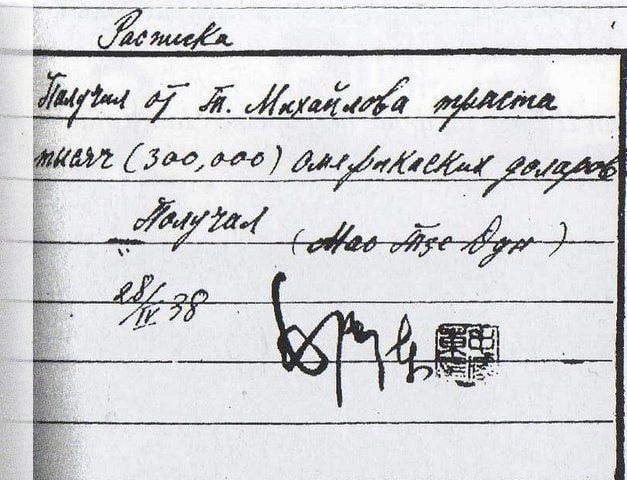 Расписка
Получил от т. Михайлова триста
тысяч (300,000) америкаских доларов
Получал (Мао Тзе Дун)
28/IV 38
毛泽东